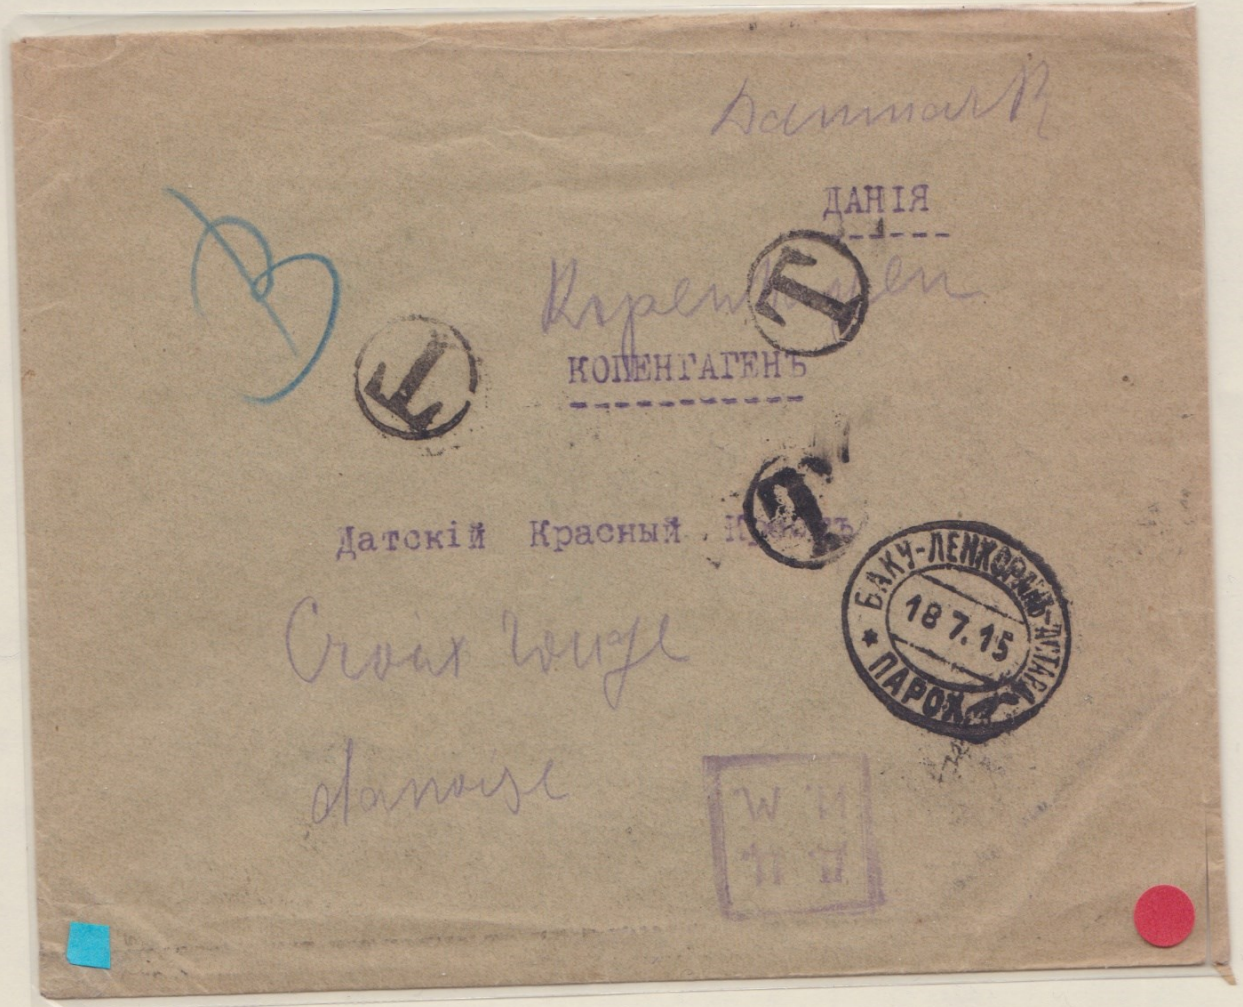 Danmark
ДАНІЯ
Kopenhagen
КОПЕНГАГЕНЪ
T
T
T
Датскій Красный
БАКУ-ЛЕНКОРАНЬ-АСТАРА
18 7. 15
* ПАРОХ.
Croix rouge
danoise